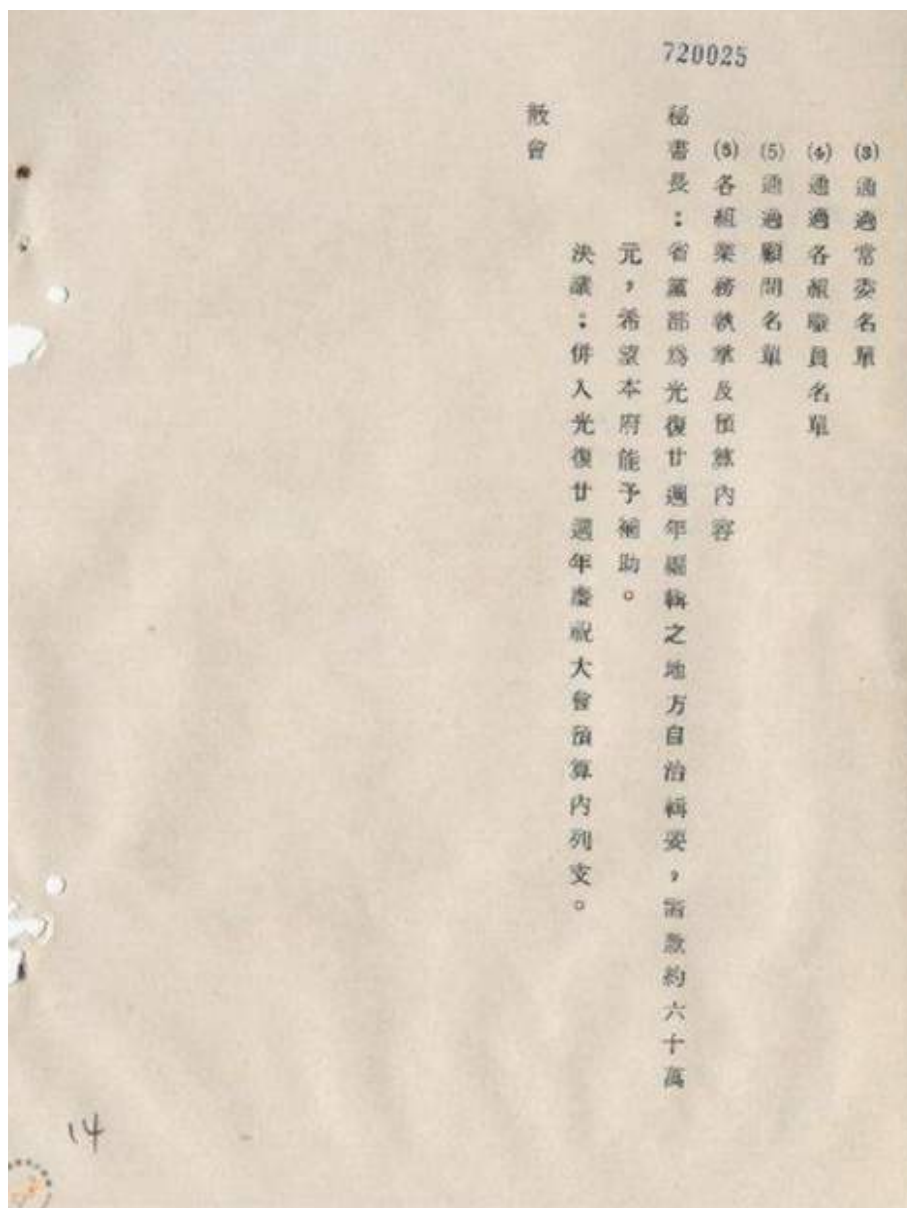 720025
(3)通過常委名單
(4)通過各組職員名單
(5)通過顧問名單
(6)各組業務執掌及預算內容
秘書長：省黨部為光復廿週年編輯之地方自治輯要，需款約六十萬
元，希望本府能予補助。
決議：併入光復廿週年慶祝大會預算內列支。
散會
14